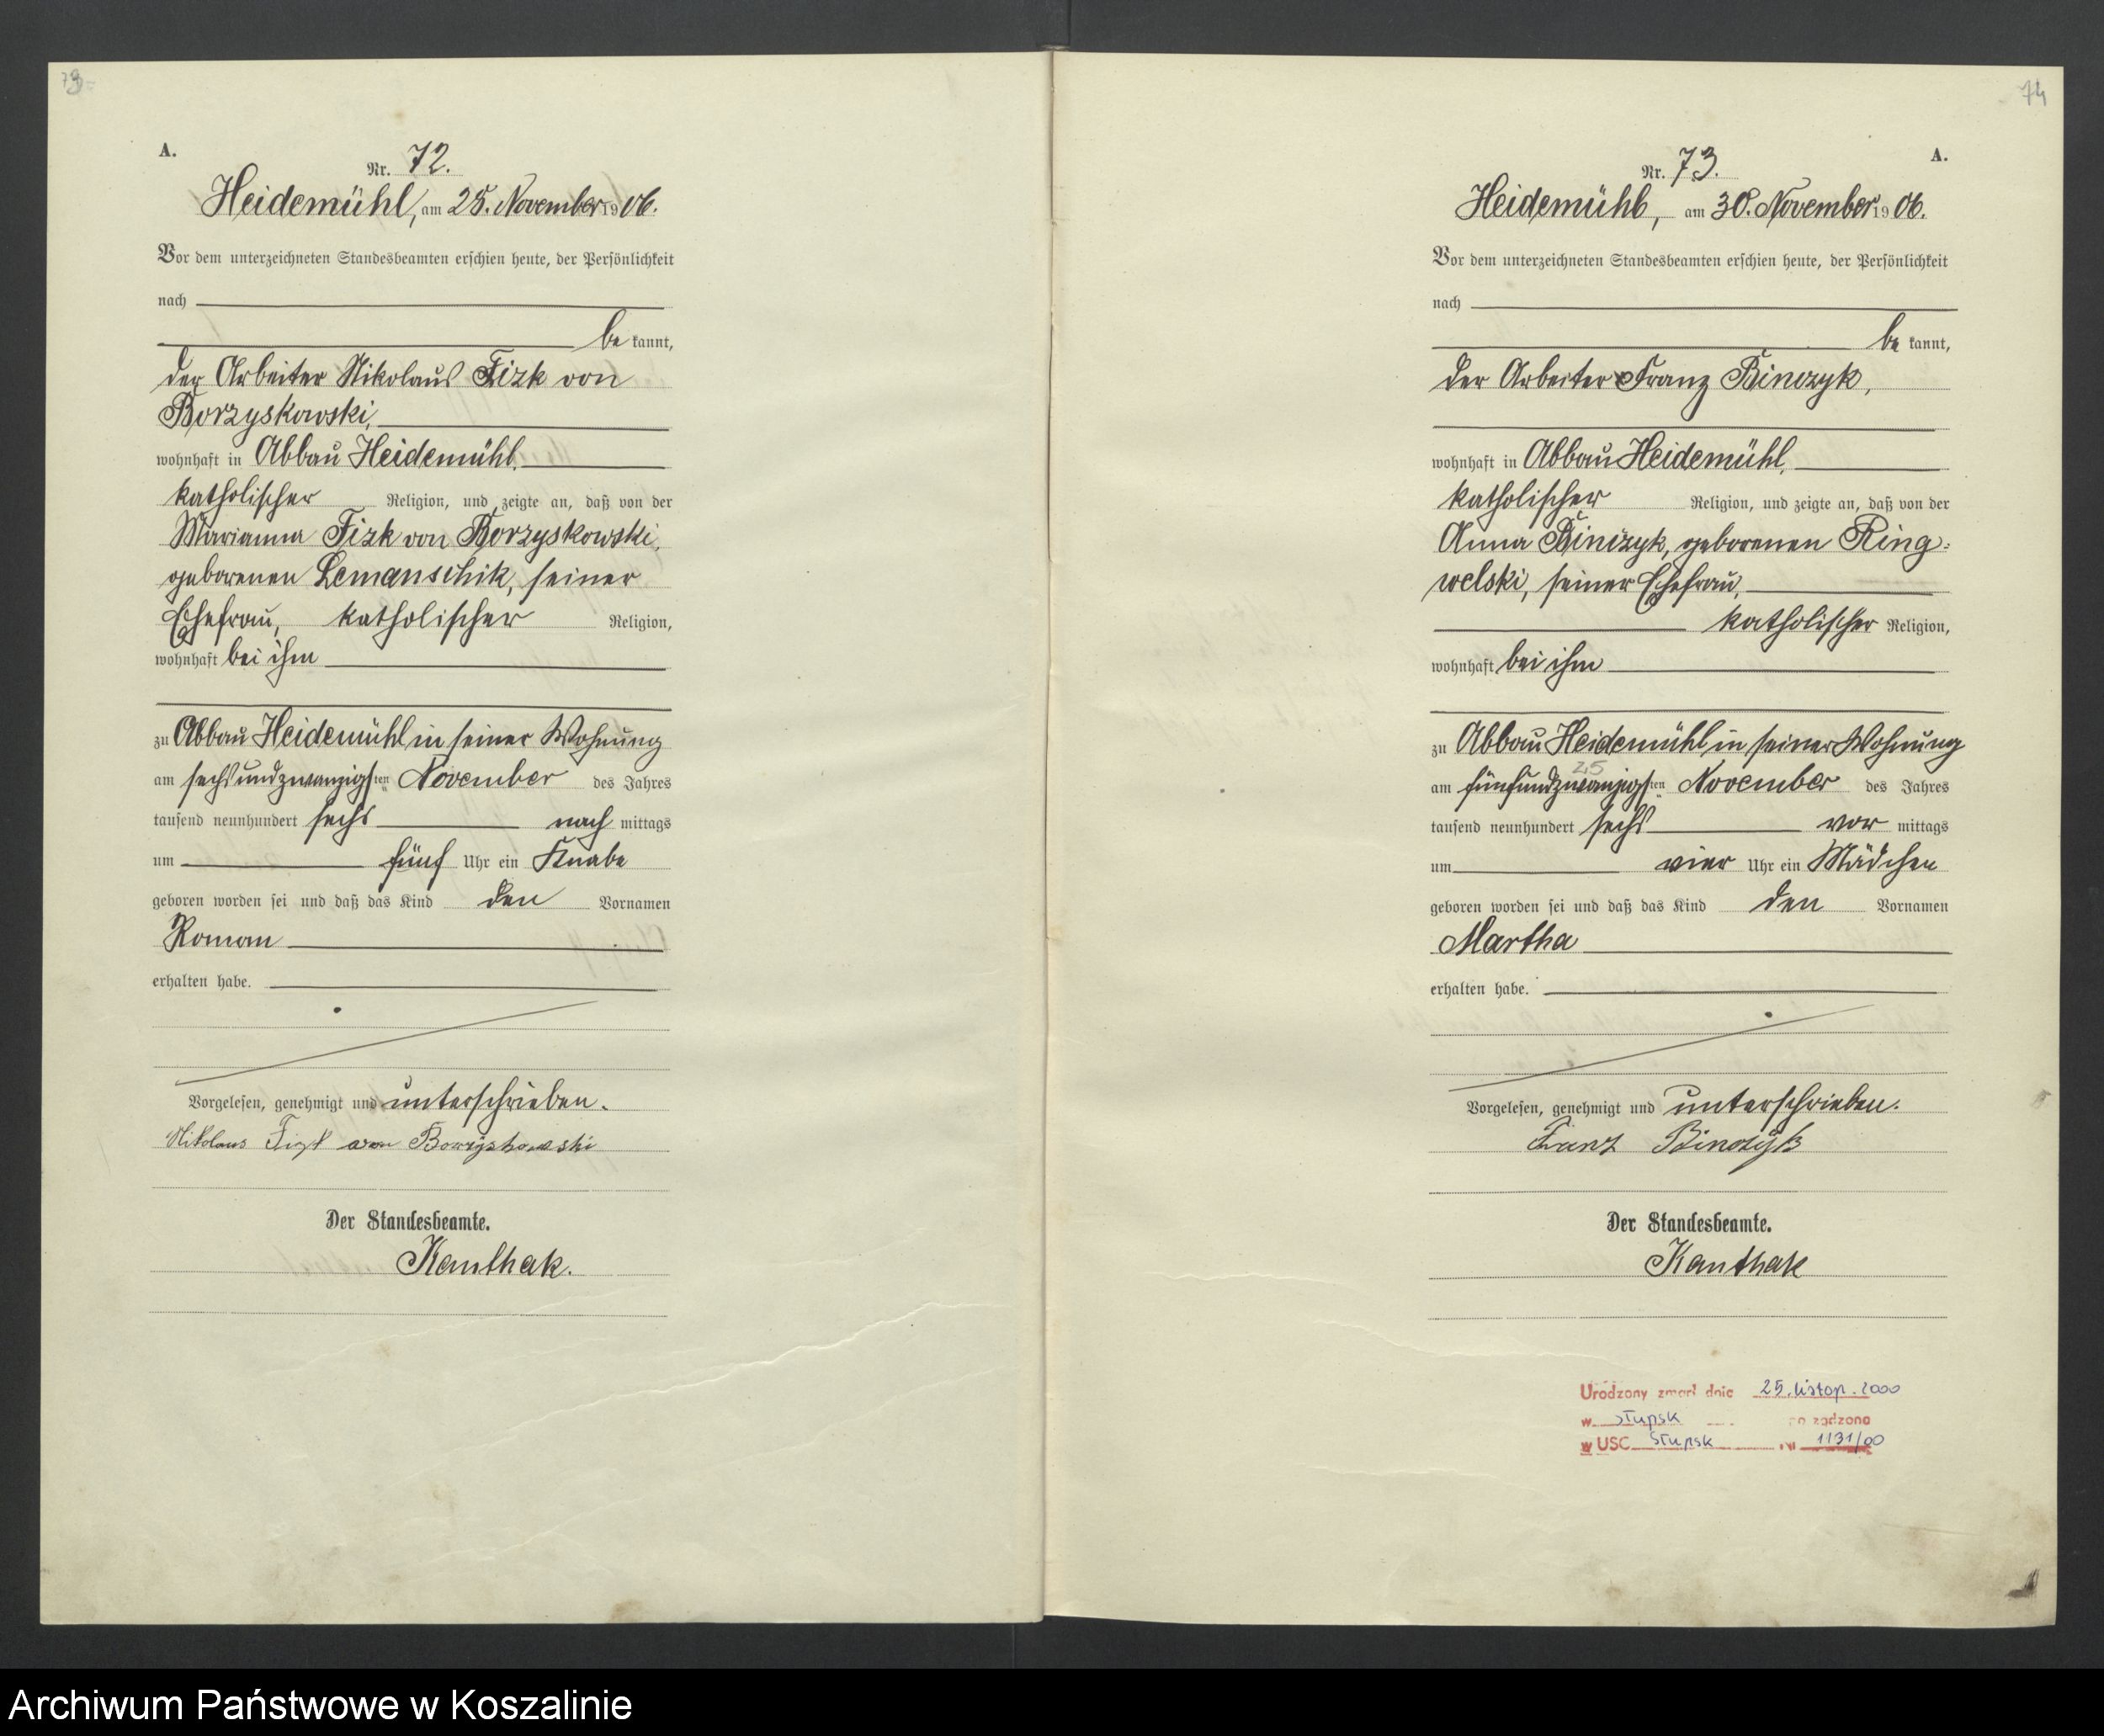 73
A.
Nr. 72.
Heidemühl, am 28. November 1906.
Vor dem unterzeichneten Standesbeamten erschien heute, der Persönlichkeit
nach
be kannt,
der Arbeiter Nikolaus Fizk von
Borzyskowski,
wohnhaft in Abbau Heidemühl,
katholischer Religion, und zeigte an, daß von der
Marianna Fizk von Borzyskowski,
geborenen Lemanschik, seiner
Ehefrau, katholischer Religion,
wohnhaft bei ihm
zu Abbau Heidemühl in seiner Wohnung
am sechsundzwanzigsten November des Jahres
tausend neunhundert sechs nach mittags
um fünf Uhr ein Knabe
geboren worden sei und daß das Kind den Vornamen
Roman
erhalten habe.
Vorgelesen, genehmigt und unterschrieben.
Nikolaus Fizk von Borzyskowski
Der Standesbeamte.
Kanthak.
74
A.
Nr. 73.
Heidemühl, am 30. November 1906.
Vor dem unterzeichneten Standesbeamten erschien heute, der Persönlichkeit
nach
be kannt,
der Arbeiter Franz Binczyk,
wohnhaft in Abbau Heidemühl,
katholischer Religion, und zeigte an, daß von der
Anna Binczyk, geborenen Ring-
welski, seiner Ehefrau,
katholischer Religion,
wohnhaft bei ihm
zu Abbau Heidemühl in seiner Wohnung
25
am fünfundzwanzigsten November des Jahres
tausend neunhundert sechs vor mittags
um vier Uhr ein Mädchen
geboren worden sei und daß das Kind den Vornamen
Martha
erhalten habe.
Vorgelesen, genehmigt und unterschrieben.
Franz Binczyk
Der Standesbeamte.
Kanthak
Urodzony zmarł dnia 25. listop. 2000
w Słupsk
w USC Słupsk Nr 1131/00
Archiwum Państwowe w Koszalinie